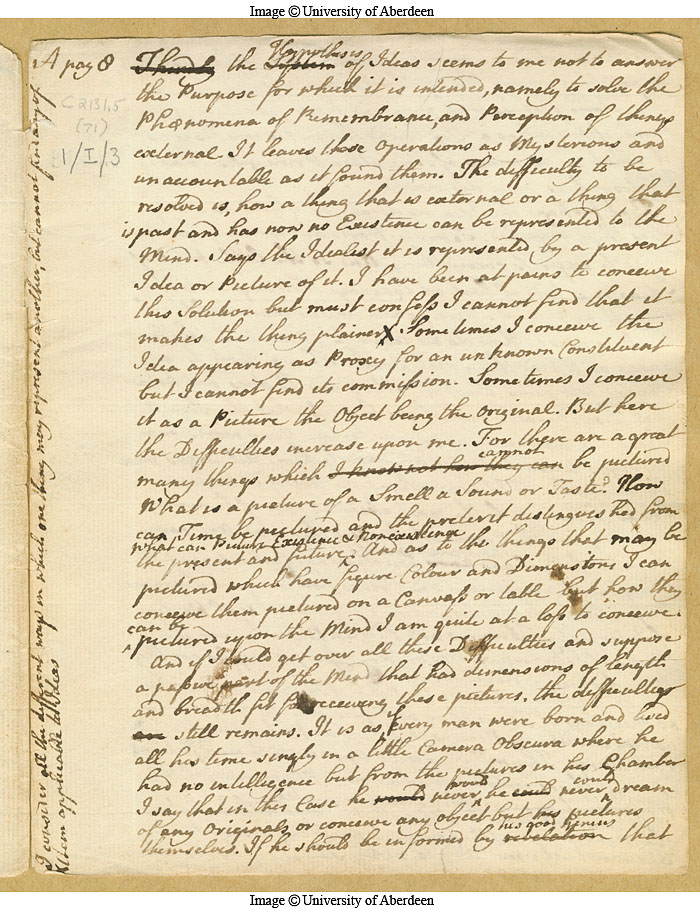 Image © University of Aberdeen
A pag 8
C2131.5
(71)
1/I/3
Hypothesis
Thirdly the System of Ideas seems to me not to answer
the Purpose for which it is intended, namely to solve the
Phænomena of Remembrance, and Perception of things
external It leaves those Operations as Mysterious and
unaccountable as it found them. The difficulty to be
resolved is, how a thing that is external or a thing that
is past and has now no Existence can be represented to the
Mind. Says the Idealist it is represented by a present
Idea or Picture of it. I have been at pains to conceive
this Solution but must confess I cannot find that it
makes the thing plainer X Sometimes I conceive the
Idea appearing as Proxy for an unknown Constituent
but I cannot find its commission. Sometimes I conceive
it as a Picture the Object being the Original. But here
the Difficulties increase upon me. For there are a great
cannot
many things which I know not how they can be pictured
What is a picture of a Smell a Sound or Taste? How
can Time be pictured and the preterit distinguished from
what can Picture Existence & Nonexistence
the present and future ^ And as to the things that may be
pictured which have figure Colour and Dimensions I can
conceive them pictured on a Canvass or table but how they
can be
^ pictured upon the Mind I am quite at a loss to conceive.
And if I could get over all these Difficulties and suppose
a passive part of the Mind that had dimensions of length
and breadth fit for receiving these pictures, the difficulties
still remains. It is as if every man were born and lived
all his time singly in a little Camera Obscura where he
had no intelligence but from the pictures in his Chamber
would could
I say that in this Case he would never ^ he could never ^ dream
of any Originals or conceive any object but his pictures
his good Genius
themselves. If he should be informed by revelation that
I consider all the different ways in which one thing may represent another, but cannot find any of
them applicable to Ideas
Image © University of Aberdeen